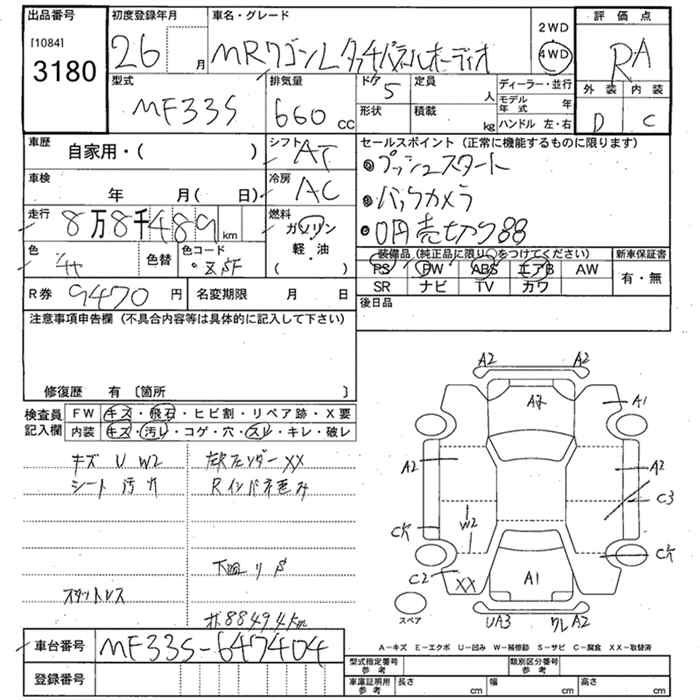 出品番号 初度登録年月 車名・グレード 評価点
[1084]
3180
26 月 MRワゴンL タッチパネルオーディオ
2WD
4WD
RA
型式 排気量 ドア 5 定員 人 ディーラー・並行
モデル年式 年
外装 内装
MF33S 660 cc 形状 積載 kg ハンドル 左・右 D C
車歴 自家用・( ) シフト AT セールスポイント (正常に機能するものに限ります)
●プッシュスタート
車検 年 月( 日) 冷房 AC ●バックカメラ
走行 8万8千489km 燃料 ガソリン ●0円売切り88
軽・油
( ・ )
色 色替 色コード ・ZSF
装備品 (純正品に限り○をつけてください) 新車保証書
PS PW ABS エアB AW 有・無
SR ナビ TV カワ
R券 9470円 名変期限 月 日 後日品
注意事項申告欄 (不具合内容等は具体的に記入して下さい)
修復歴 有 〔箇所 〕
検査員記入欄
FW キズ・飛石・ヒビ割・リペア跡・X要
内装 キズ・汚レ・コゲ・穴・スレ・キレ・破レ
キズ U W2
シート 汚レ
XX
Rインパネ歪み
下廻り S
スタットレス
88494km
A2 A2
A2
A1
A2 A2
C3
W2
C2
XX
A1
スペア
UA3 ワレA2
A－キズ E－エクボ U－凹み W－補修跡 S－サビ C－腐食 XX－取替済
車台番号 MF33S-647404
登録番号
型式指定番号 参考 類別区分番号 参考
車庫証明用 参考 長さ cm 幅 cm 高さ cm